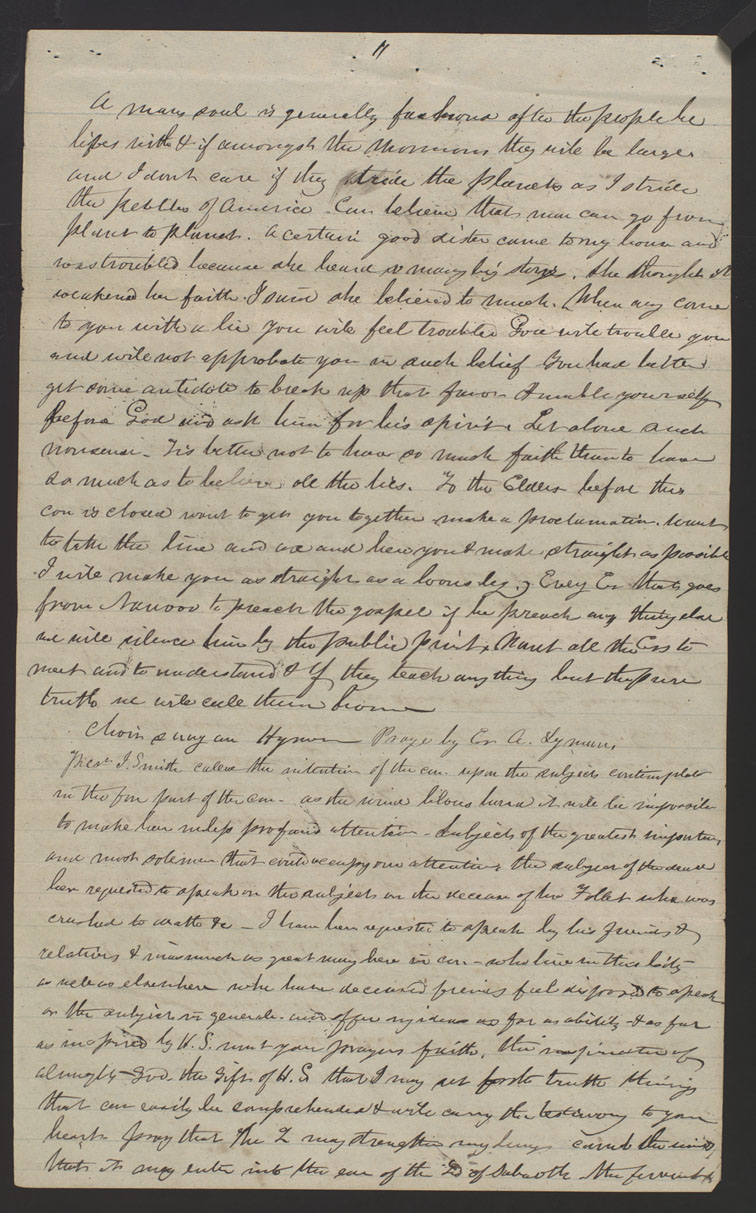 11
A mans soul is generally fashiond after the people he
lives with & if amongst the Mormons they will be large
and I dont care if they stride the planets as I stride
the pebbles of America. Can believe that man can go from
planet to planet. A certain good sister came to my house and
was troubled because she heard so many big storys. She thought it
weakened her faith. I said she believed to much. When any come
to you with a lie you will feel troubled God will trouble you
and will not approbate you in such belief You had better
get some antidote to break up that humble yourself
before God and ask him for his spirit. Let alone such
nonsense - Tis better not to have so much faith than to have
so much as to believe all the lies. To the Elders before this
con is closed want to get you together make a proclamation. want
to take the line and ax and hew you & make straight as possible
I will make you as straight as a loons leg. Every Er that goes
from Nauvoo to preach the gospel if he preach any thing else
we will silence him by the public print. Want all the Ers to
meet and to understand & if they teach any thing but the pure
truth we will call them home
Choir sung an Hymn Praye by Er A. Lyman.
Prest J. Smith called the attention of the con. upon the subjects contemplat
in the fore part of the con - as the wind blows hard it will be impossible
to make hear unless profound attention - Subjects of the greatest importance
and most solemn that could occupy our attention, the subject of the dead
been requested to speak on the subject on the decease of bro Follet who was
crushed to death &c - I have been requested to speak by his friends &
relatives & inasmuch as great many here in con - who live in this City
as well as elsewhere who have deceased friends feel disposed to speak
on the subject in general - and offer my ideas as far as ability & as far
as inspired by H.S. want your prayers faith, the inspiration of
almighty God the gift of H.G that I may set forth truth things
that can easily be comprehended & will carry the testimony to your
hearts pray that the L may strengthen my lungs the winds
that it may enter into the ear of the Ld of Sabaoth the fervent